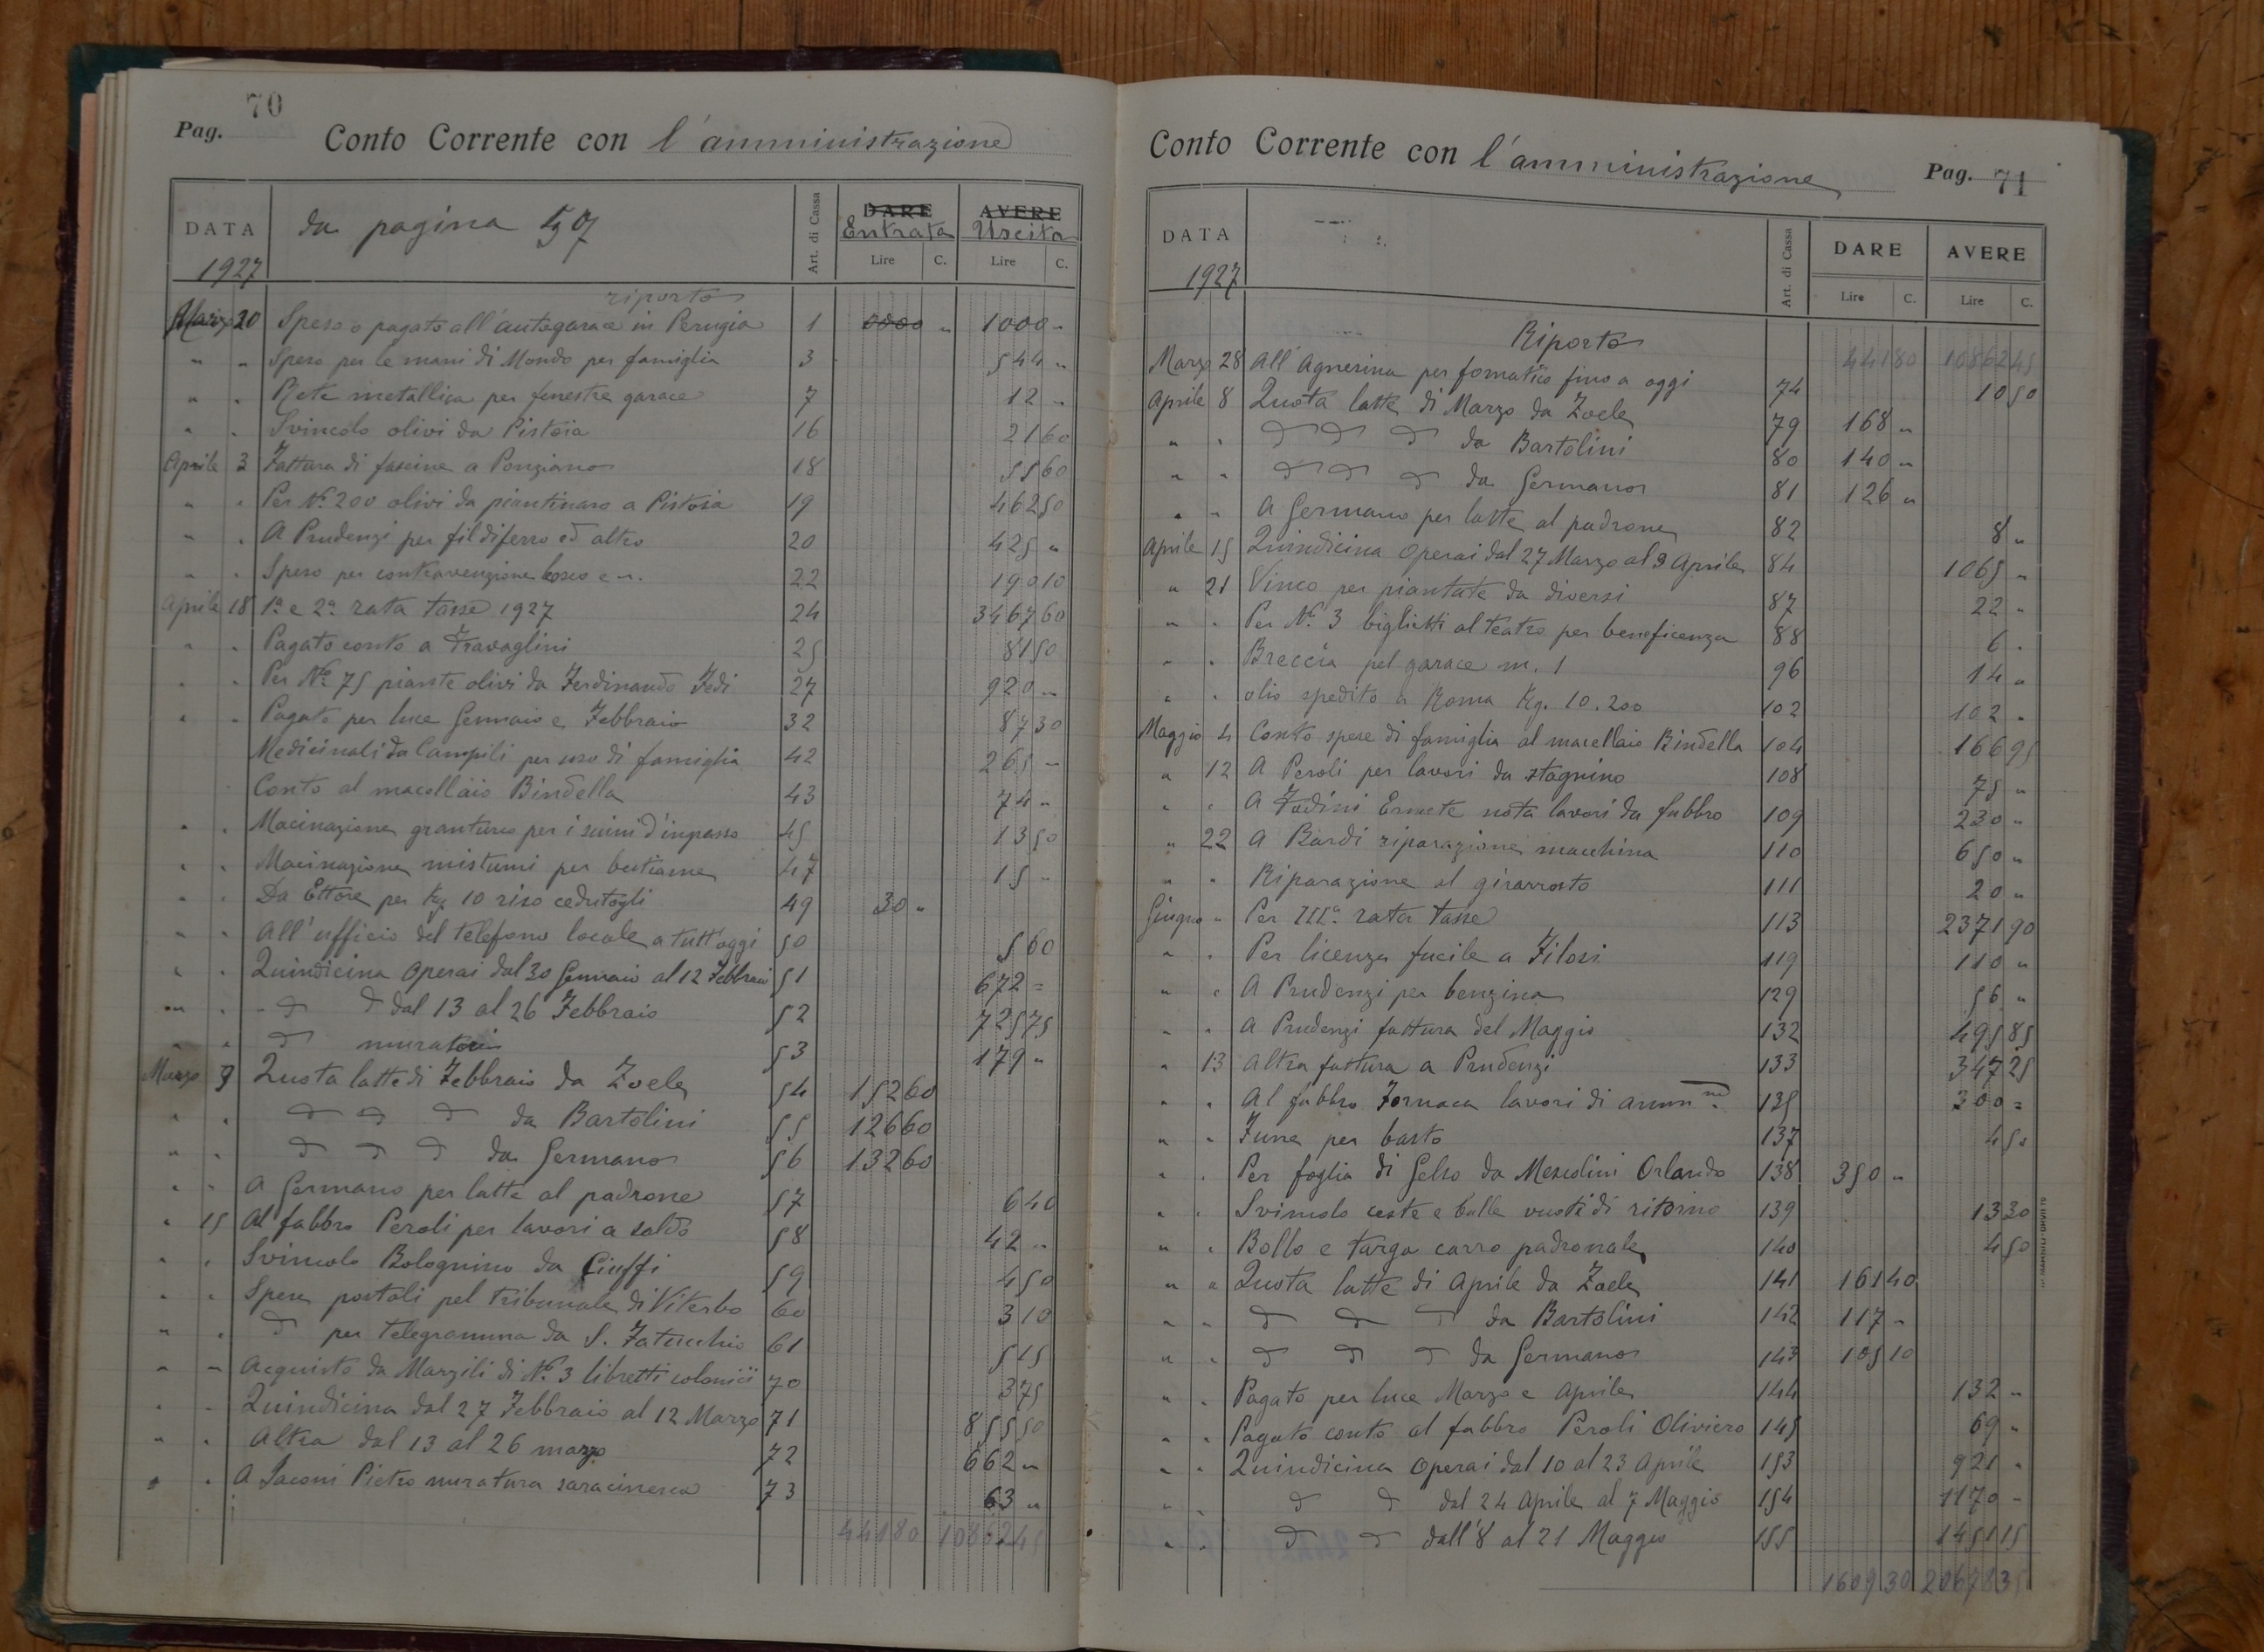 Pag. 70
Conto Corrente con l'amministrazione
DATA 1927 da pagina 59 Art. di Cassa DARE Entrata AVERE Uscita
Lire C. Lire C.
riporto
Marzo 20 Speso o pagato all'autogarace in Perugia 1 0000 " 1000 "
" " Speso per le mani di Mondo per famiglia 3 544 "
" " Rete metallica per fenestre garace 7 12 "
" " Svincolo olivi da Pistoia 16 21 60
Aprile 3 Fattura di fascine a Ponziano 18 55 60
" " Per No. 200 olivi da piantinaro a Pistoia 19 462 50
" " A Prudenzi per fil di ferro ed altro 20 425 "
" " Speso per contravenzione bosco 22 190 10
Aprile 18 1a e 2a rata tasse 1927 24 3467 60
" " Pagato conto a Travaglini 25 81 50
" " Per No. 75 piante olivi da Ferdinando Fedi 27 920 "
" " Pagato per luce Gennaio e Febbraio 32 87 30
Medicinali da Campili per uso di famiglia 42 265 "
Conto al macellaio Bindella 43 74 "
" " Macinazione granturco per i suini d'ingrasso 45 13 50
" " Macinazione mistumi per bestiame 47 15 "
" " Da Ettore per Kg. 10 riso cedutogli 49 30 "
" " All'ufficio del telefono locale a tutt'oggi 50 5 60
" " Quindicina operai dal 30 Gennaio al 12 Febbraio 51 672 =
" " d d dal 13 al 26 Febbraio 52 725 75
" " d muratori 53 179 "
Marzo 9 Quota latte di Febbraio da Zoele 54 152 60
" " d d d da Bartolini 55 126 60
" " d d d da Germano 56 132 60
" " A Germano per latte al padrone 57 6 40
" 15 Al fabbro Peroli per lavori a saldo 58 42 "
" " Svincolo Bolognino da Ciuffi 59 4 50
" " Spese postali pel tribunale di Viterbo 60 3 10
" " d per telegramma da S. Fatucchio 61 5 15
" " Acquisto da Marzili di No. 3 libretti colonici 70 3 75
" " Quindicina dal 27 Febbraio al 12 Marzo 71 855 50
" " Altra dal 13 al 26 marzo 72 662 "
" " A Jaconi Pietro muratura saracinesca 73 63 "
441 80 10862 45
Conto Corrente con l'amministrazione
Pag. 71
DATA 1927 Art. di Cassa DARE AVERE
Lire C. Lire C.
Riporto 441 80 10862 45
Marzo 28 All'Agnesina per fornatico fino a oggi 74 10 50
Aprile 8 Quota latte di Marzo da Zoele 79 168 "
" " d d d da Bartolini 80 140 "
" " d d d da Germano 81 126 "
" " A Germano per latte al padrone 82 8 "
Aprile 15 Quindicina operai dal 27 Marzo al 9 Aprile 84 1065 "
" 21 Vinco per piantate da diversi 87 22 "
" " Per No. 3 biglietti al teatro per beneficenza 88 6 "
" " Breccia pel garace m. 1 96 14 "
" " olio spedito a Roma Kg. 10.200 102 102 "
Maggio 4 Conto spese di famiglia al macellaio Bindella 104 166 95
" 12 A Peroli per lavori da stagnino 108 75 "
" " A Fodini Ermete nota lavori da fabbro 109 230 "
" 22 A Bardi riparazione macchina 110 650 "
" " Riparazione al girarrosto 111 20 "
Giugno " Per IIIa rata tasse 113 2371 90
" " Per licenza fucile a Filosi 119 110 "
" " A Prudenzi per benzina 129 56 "
" " A Prudenzi fattura del Maggio 132 495 85
" 13 Altra fattura a Prudenzi 133 347 25
" " Al fabbro Fornaca lavori di ammne. 135 300 =
" " Fune per basto 137 4 50
" " Per foglia di Gelso da Mescolini Orlando 138 350 "
" " Svincolo ceste e balle vuote di ritorno 139 13 30
" " Bollo e targa carro padronale 140 4 50
" " Quota latte di Aprile da Zoele 141 161 40
" " d d d da Bartolini 142 117 "
" " d d d da Germano 143 105 10
" " Pagato per luce Marzo e Aprile 144 132 "
" " Pagato conto al fabbro Peroli Oliviero 145 69 "
" " Quindicina operai dal 10 al 23 Aprile 153 921 "
" " d d dal 24 Aprile al 7 Maggio 154 1170 "
" " d d dall'8 al 21 Maggio 155 1451 15
1609 30 20678 35